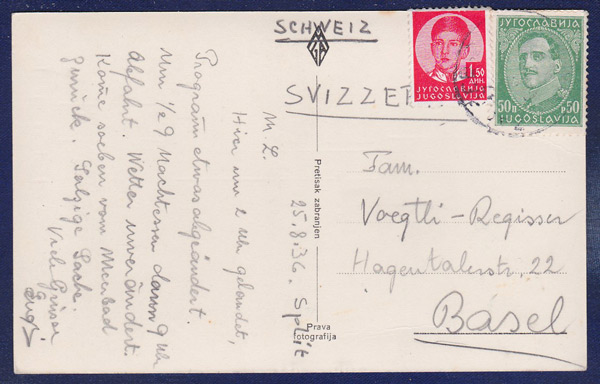 SCHWEIZ
SVIZZE
ЈУГОСЛАВИЈА
1.50
ДИН.
ЈУГОСЛАВИЈА
JUGOSLAVIJA
ЈУГОСЛАВИЈА
50п P50
JUGOSLAVIJA
25.8.36. Split
M L.
Hier um 2 Uhr gelandet,
Programm etwas abgeändert.
Um ½ 9 Nachtessen dann 9 Uhr
Abfahrt. Wetter unverändert.
Kome soeben vom Meerbad
zurück. Salzige Sache.
Viele Grüsse
Pretisak zabranjen
Prava
fotografija
Fam.
Voegtli-Regisser
Hagentalerstr. 22
Basel